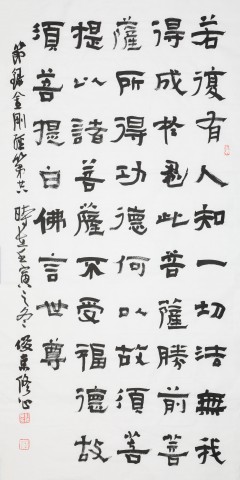 若復有人知一切法無我
得成於忍此菩薩勝前菩
薩所得功德何以故須菩
提以諸菩薩不受福德故
須菩提白佛言世尊
節錄金剛經第 時在壬寅之冬